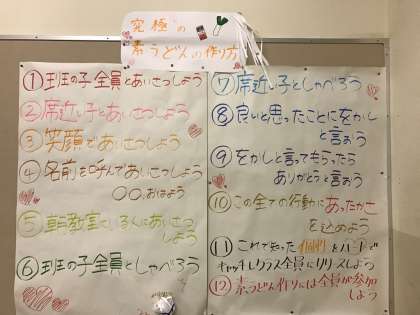 究極の
素うどんの作り方
①班の子全員とあいさつしよう
②席近い子とあいさつしよう
③笑顔であいさつしよう
④名前を呼んであいさつしよう
〇〇、おはよう
⑤朝教室にいる人にあいさつ
しよう
⑥班の子全員としゃべろう
⑦席近い子としゃべろう
⑧良いと思ったことにをかし
と言おう
⑨をかしと言ってもらったら
ありがとうと言おう
⑩この全ての行動にあったかさ
を込めよう
⑪これで知った個性をハートで
キャッチしクラス全員にリリースしよう
⑫素うどん作りには全員が参加
しよう